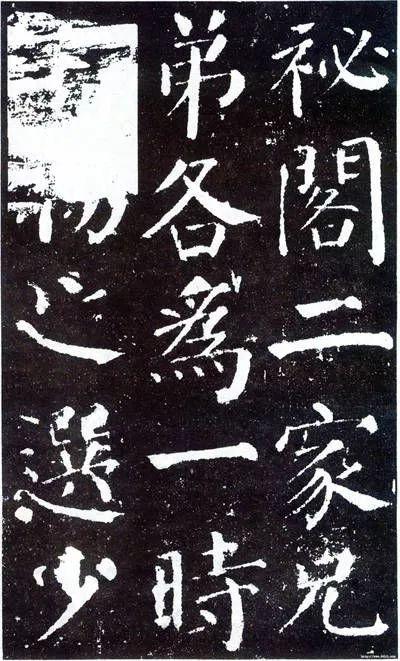 祕閣二家兄
弟各爲一時
之選少